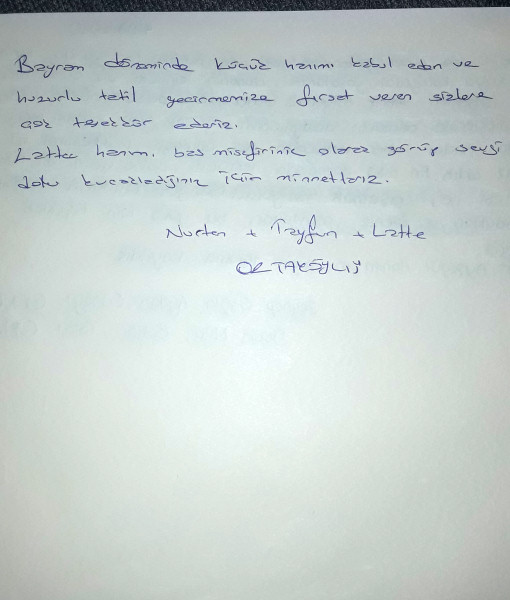 Bayram döneminde küçük hanımı kabul eden ve
huzurlu tatil geçirmemize fırsat veren sizlere
çok teşekkür ederiz.
Latte hanım, baş misafiriniz olarak görüp sevgi
dolu kucakladığınız için minnettarız.
Nurten + Tayfun + Latte
ORTAKÖYLÜ